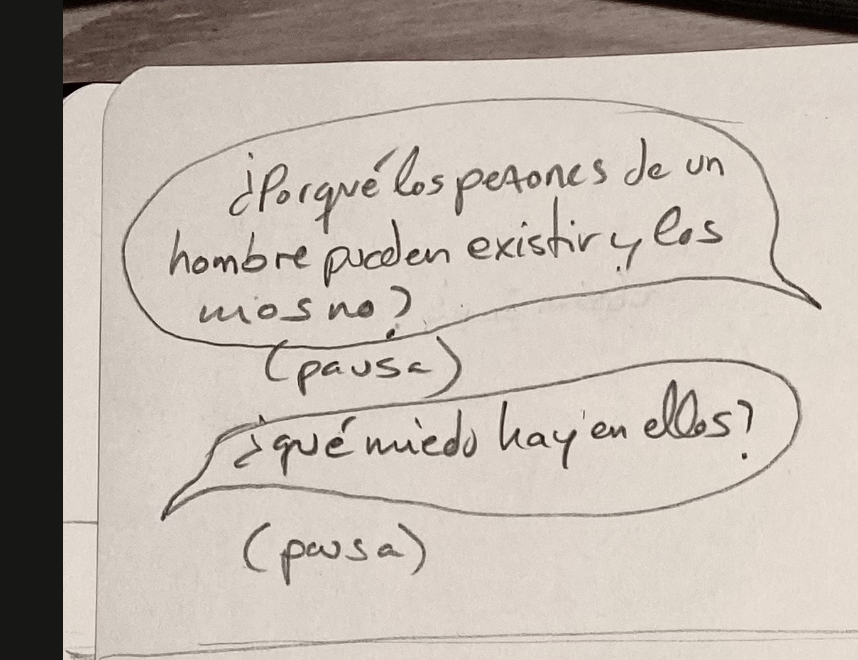 ¿Porqué los pezones de un
hombre pueden existir y los
mios no?
(pausa)
¿qué miedo hay en ellos?
(pausa)